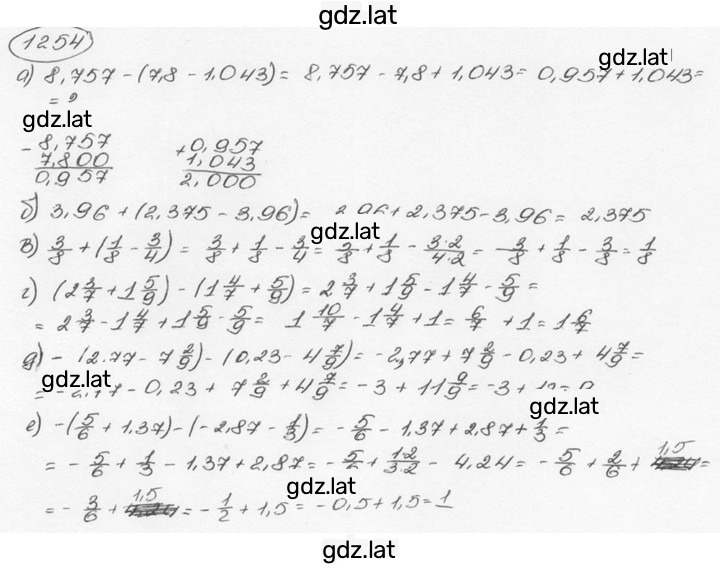 gdz.lat
1254
gdz.lat
а) 8,757 - (7,8 - 1,043) = 8,757 - 7,8 + 1,043 = 0,957 + 1,043 =
= 2
gdz.lat
- 8,757
7,800
0,957
+ 0,957
1,043
2,000
б) 3,96 + (2,375 - 3,96) = 3,96 + 2,375 - 3,96 = 2,375
gdz.lat
в) 3/8 + (1/8 - 3/4) = 3/8 + 1/8 - 3/4 = 3/8 + 1/8 - 3·2/4·2 = 3/8 + 1/8 - 3/8 = 1/8
г) (2 3/7 + 1 5/9) - (1 4/7 + 5/9) = 2 3/7 + 1 5/9 - 1 4/7 - 5/9 =
= 2 3/7 - 1 4/7 + 1 5/9 - 5/9 = 1 10/7 - 1 4/7 + 1 = 6/7 + 1 = 1 6/7
д) - (2.77 - 7 2/9) - (0,23 - 4 7/9) = -2,77 + 7 2/9 - 0,23 + 4 7/9 =
gdz.lat
= -2,77 - 0,23 + 7 2/9 + 4 7/9 = -3 + 11 9/9 = -3 +
gdz.lat
е) -(5/6 + 1,37) - (-2,87 - 1/3) = - 5/6 - 1,37 + 2,87 + 1/3 =
= - 5/6 + 1/3 - 1,37 + 2,87 = - 5/6 + 1·2/3·2 - 4,24 = - 5/6 + 2/6 + 1,5 =
gdz.lat
= - 3/6 + 1,5 = - 1/2 + 1,5 = - 0,5 + 1,5 = 1
gdz.lat